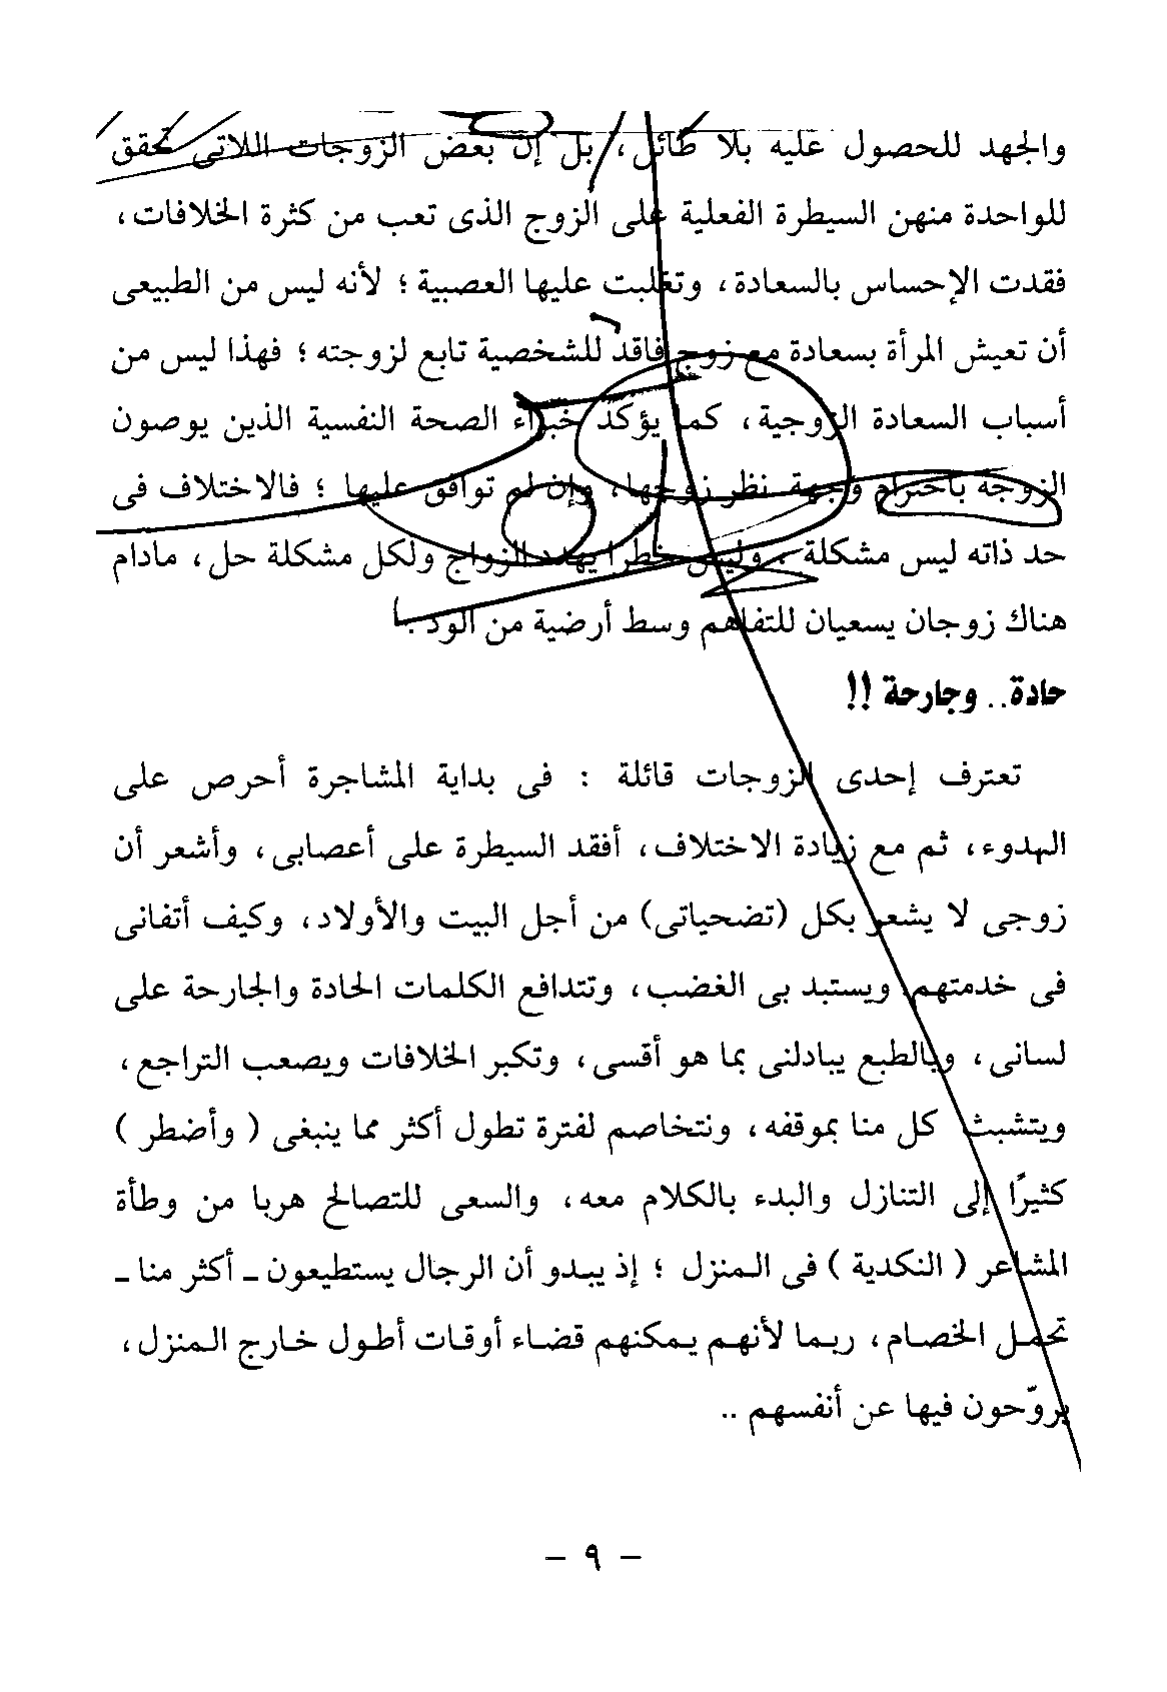 والجهد للحصول عليه بلا طائل، بل إن بعض الزوجات اللاتى تحقق
للواحدة منهن السيطرة الفعلية على الزوج الذى تعب من كثرة الخلافات،
فقدت الإحساس بالسعادة، وتغلبت عليها العصبية ؛ لأنه ليس من الطبيعى
أن تعيش المرأة بسعادة مع زوج فاقد للشخصية تابع لزوجته ؛ فهذا ليس من
أسباب السعادة الزوجية، كما يؤكد خبراء الصحة النفسية الذين يوصون
الزوجة باحترام وجهة نظر زوجها، وإن لم توافق عليها ؛ فالاختلاف فى
حد ذاته ليس مشكلة ، وليس خطرا يهدد الزواج ولكل مشكلة حل، مادام
هناك زوجان يسعيان للتفاهم وسط أرضية من الود .
حادة.. وجارحة !!
تعترف إحدى الزوجات قائلة : فى بداية المشاجرة أحرص على
الهدوء، ثم مع زيادة الاختلاف، أفقد السيطرة على أعصابى، وأشعر أن
زوجى لا يشعر بكل (تضحياتى) من أجل البيت والأولاد، وكيف أتفانى
فى خدمتهم، ويستبد بى الغضب، وتتدافع الكلمات الحادة والجارحة على
لسانى، وبالطبع يبادلنى بما هو أقسى، وتكبر الخلافات ويصعب التراجع،
ويتشبث كل منا بموقفه، ونتخاصم لفترة تطول أكثر مما ينبغى ( وأضطر )
كثيرًا إلى التنازل والبدء بالكلام معه، والسعى للتصالح هربا من وطأة
المشاعر ( النكدية ) فى المنزل ؛ إذ يبدو أن الرجال يستطيعون ـ أكثر منا ـ
تحمل الخصام، ربما لأنهم يمكنهم قضاء أوقات أطول خارج المنزل،
يروّحون فيها عن أنفسهم ..
– ٩ –